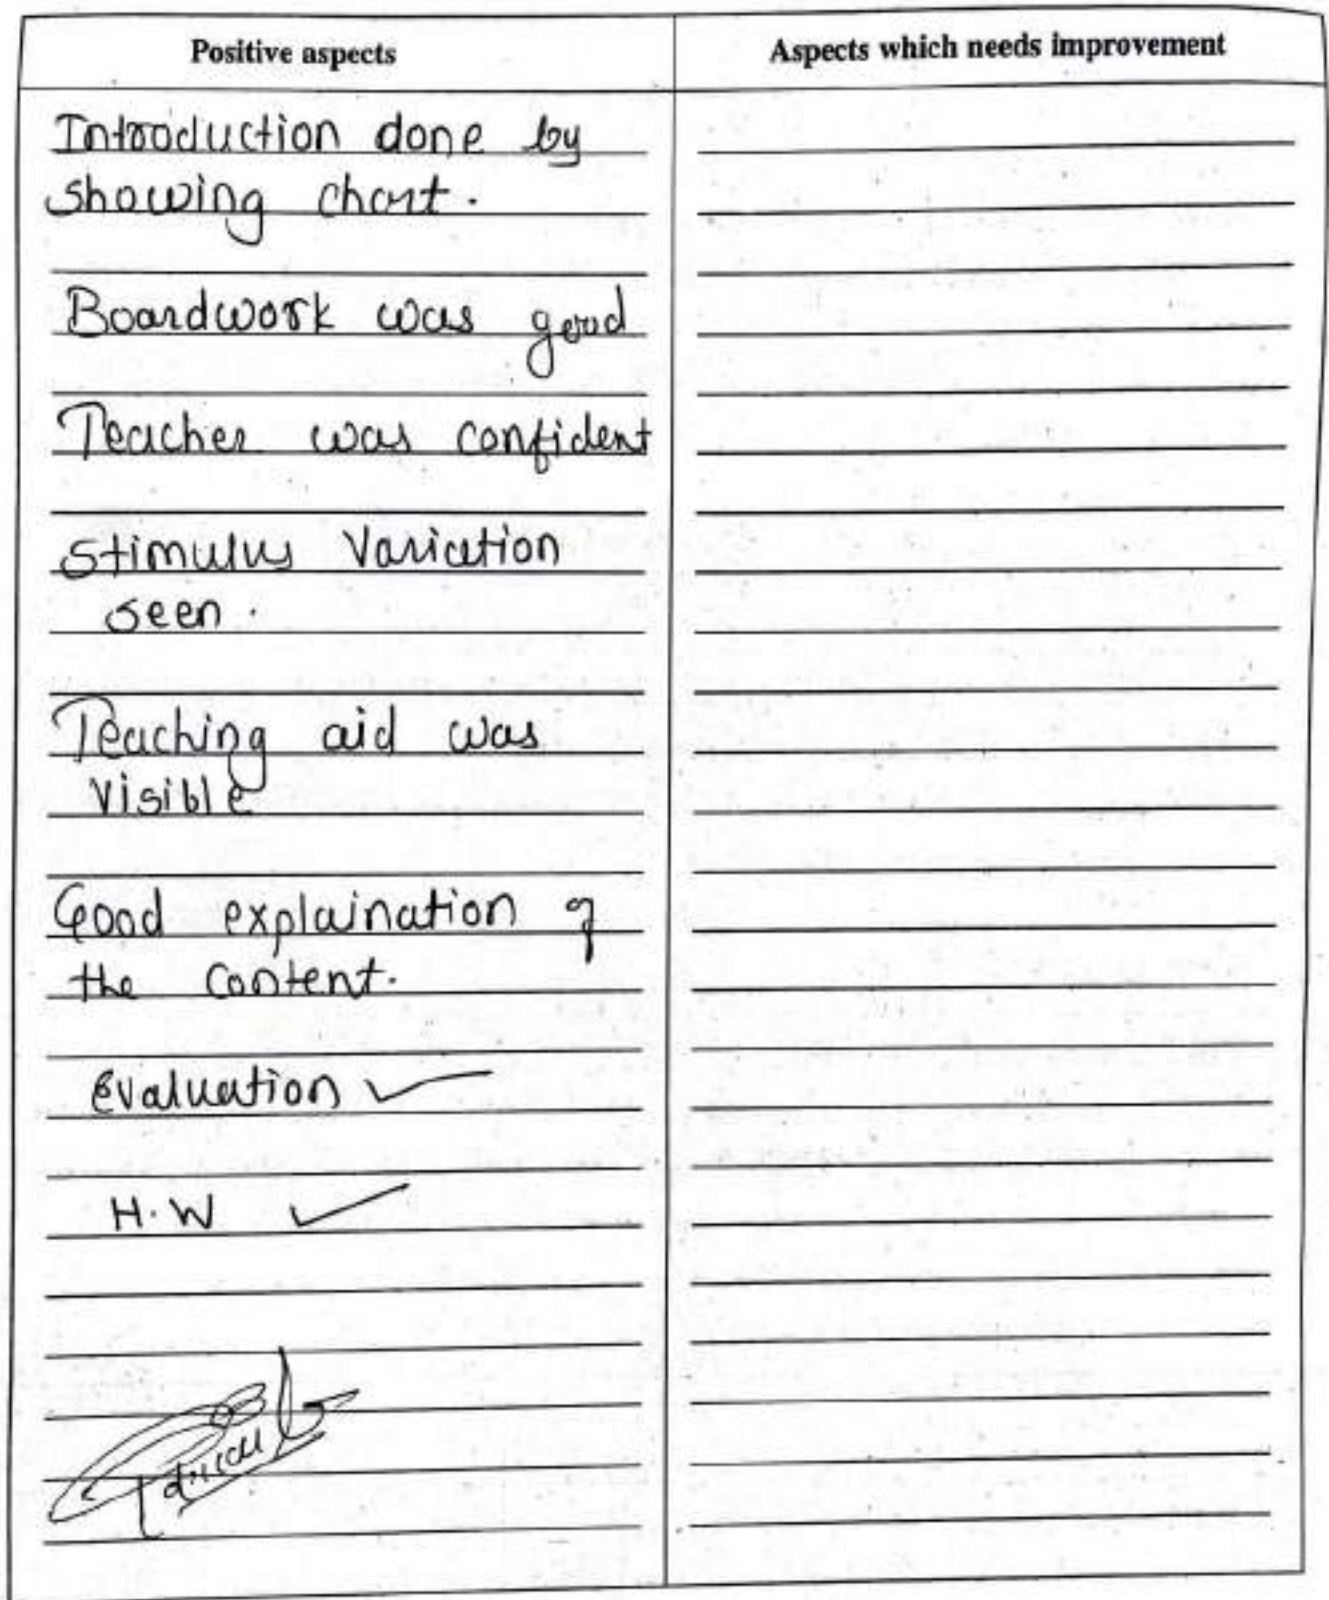 Positive aspects
Aspects which needs improvement
Introduction done by
showing chart.
Boardwork was good
Teacher was confident
Stimulus Variation
seen.
Teaching aid was
Visible
Good explaination of
the content.
Evaluation ✓
H.W ✓